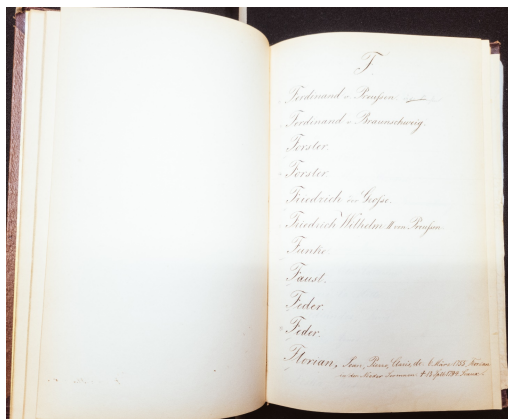 F.
Ferdinand v. Preußen.
Ferdinand v. Braunschweig.
Forster.
Forster.
Friedrich der Große.
Friedrich Wilhelm II von Preußen.
Funke.
Faust.
Feder.
Feder.
Florian, Jean, Pierre, Claris, de. 6 März 1755
in der Nieder † 13 Sept 1794